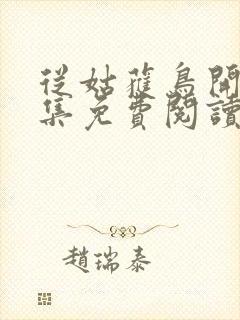 從姑蘿鳥開
集免費閱讀
趙瑞泰